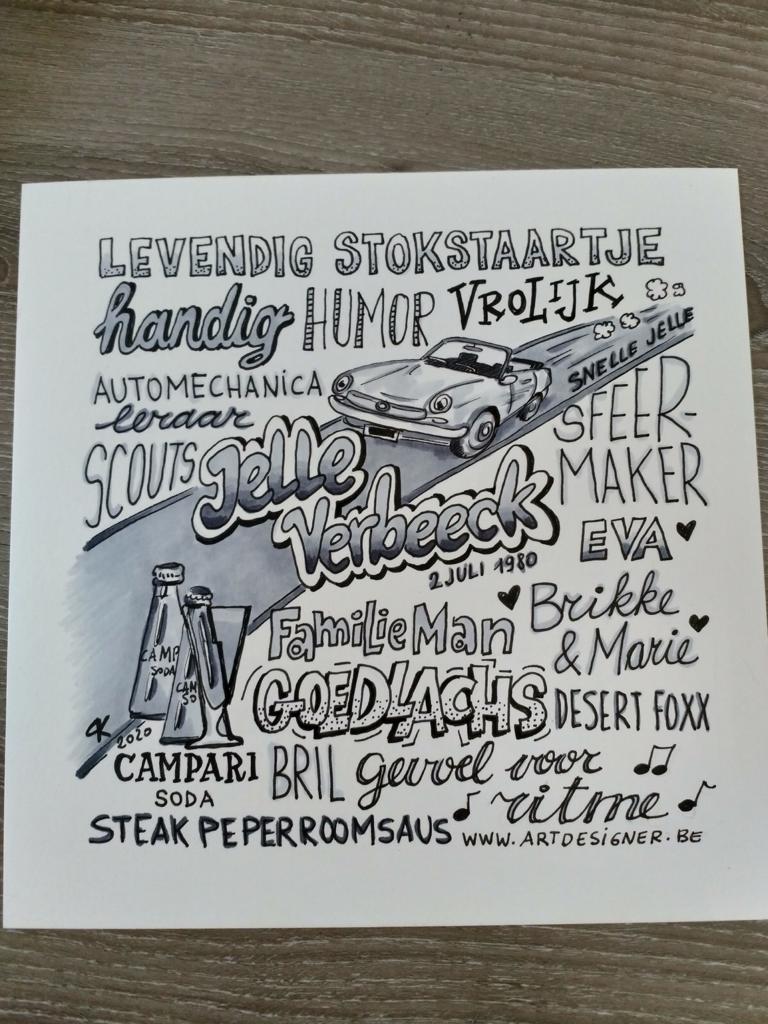 LEVENDIG STOKSTAARTJE
handig HUMOR VROLIJK
SNELLE JELLE
AUTOMECHANICA
leraar
SFEER-
MAKER
SCOUTS
Jelle
Verbeeck
2 JULI 1980
EVA
Familie Man
Brikke
& Marie
GOEDLACHS
DESERT FOXX
CAMP
SODA
CAM
SO
2020
CAMPARI
SODA
BRIL
gevoel voor
ritme
STEAK PEPERROOMSAUS
WWW.ARTDESIGNER.BE